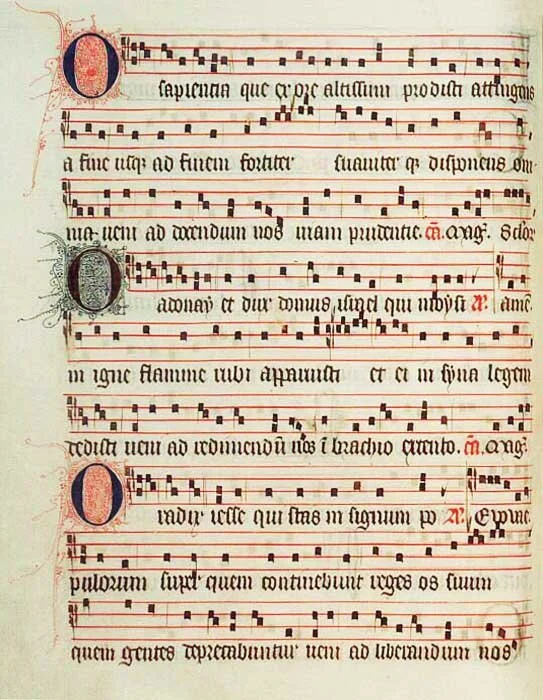 O sapientia que ex ore altissimi prodisti attingens
a fine usq; ad finem fortiter suauiter q; disponens om
nia ueni ad docendum nos uiam prudentie. añ. Mag̃.
O adonay et dux domus israel qui moysi
in igne flamme rubi apparuisti et ei in syna legem
dedisti ueni ad redimendũ nos ĩ brachio extento. añ. Mag̃.
O radix iesse qui stas in signum po
pulorum super quem continebunt reges os suum
quem gentes deprecabuntur ueni ad liberandum nos